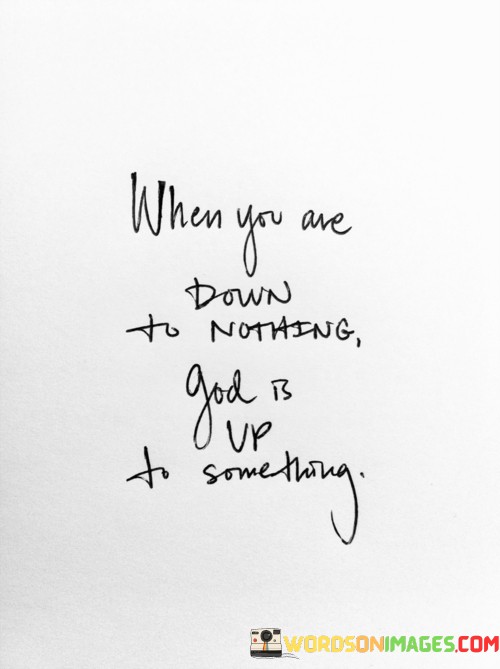 When you are
DOWN
to NOTHING,
God is
UP
to something.
WORDSONIMAGES.COM